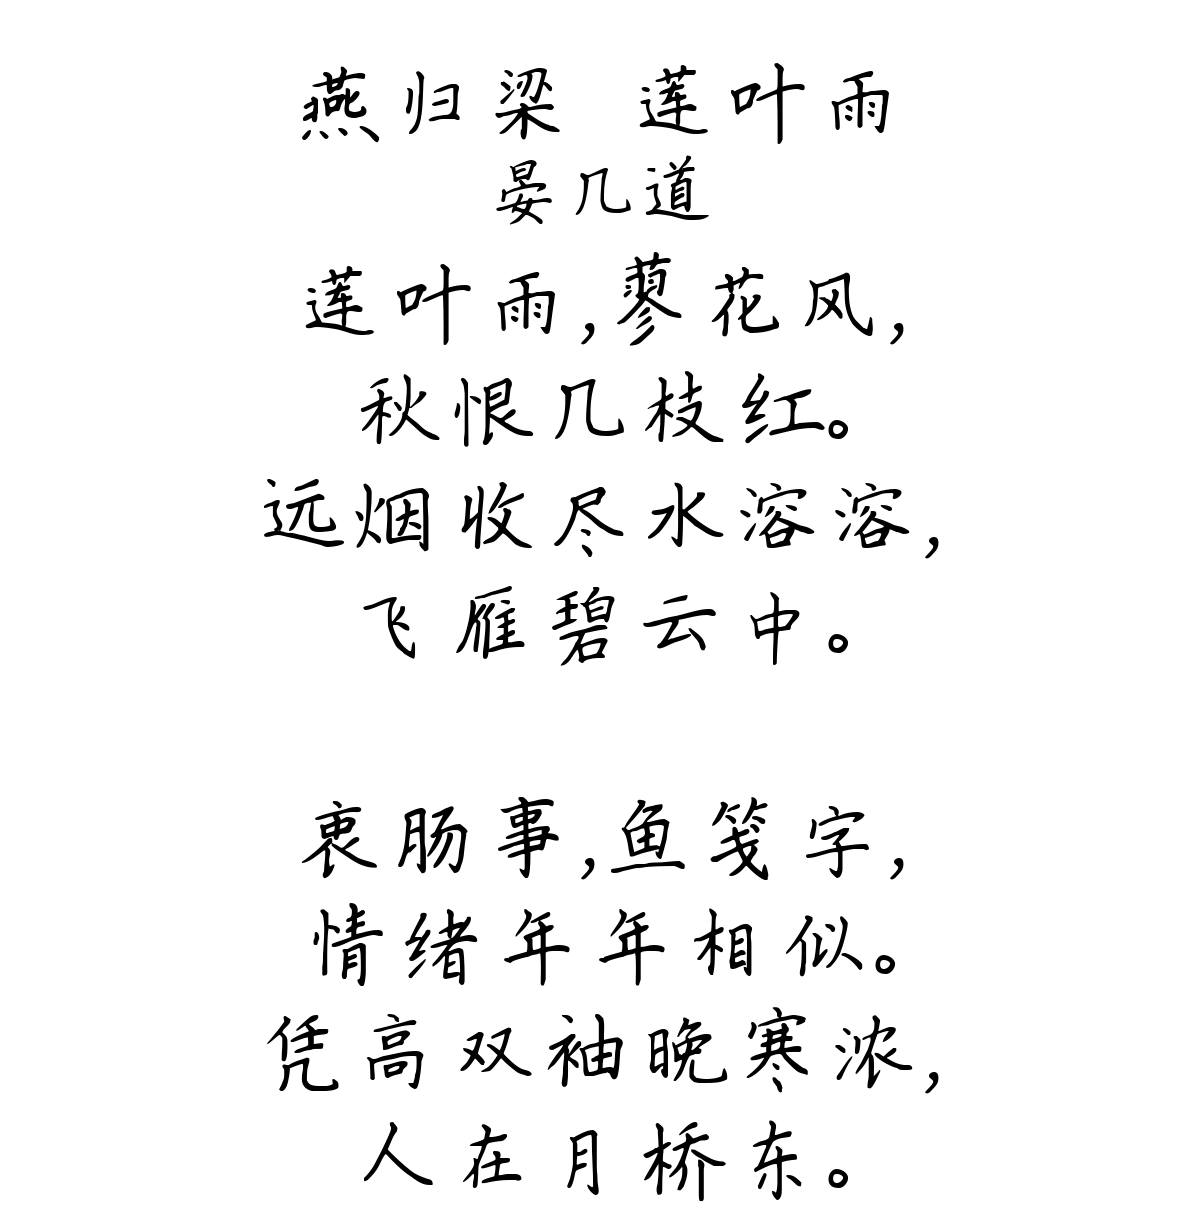 燕归梁 莲叶雨
晏几道
莲叶雨,蓼花风,
秋恨几枝红。
远烟收尽水溶溶,
飞雁碧云中。
衷肠事,鱼笺字,
情绪年年相似。
凭高双袖晚寒浓,
人在月桥东。